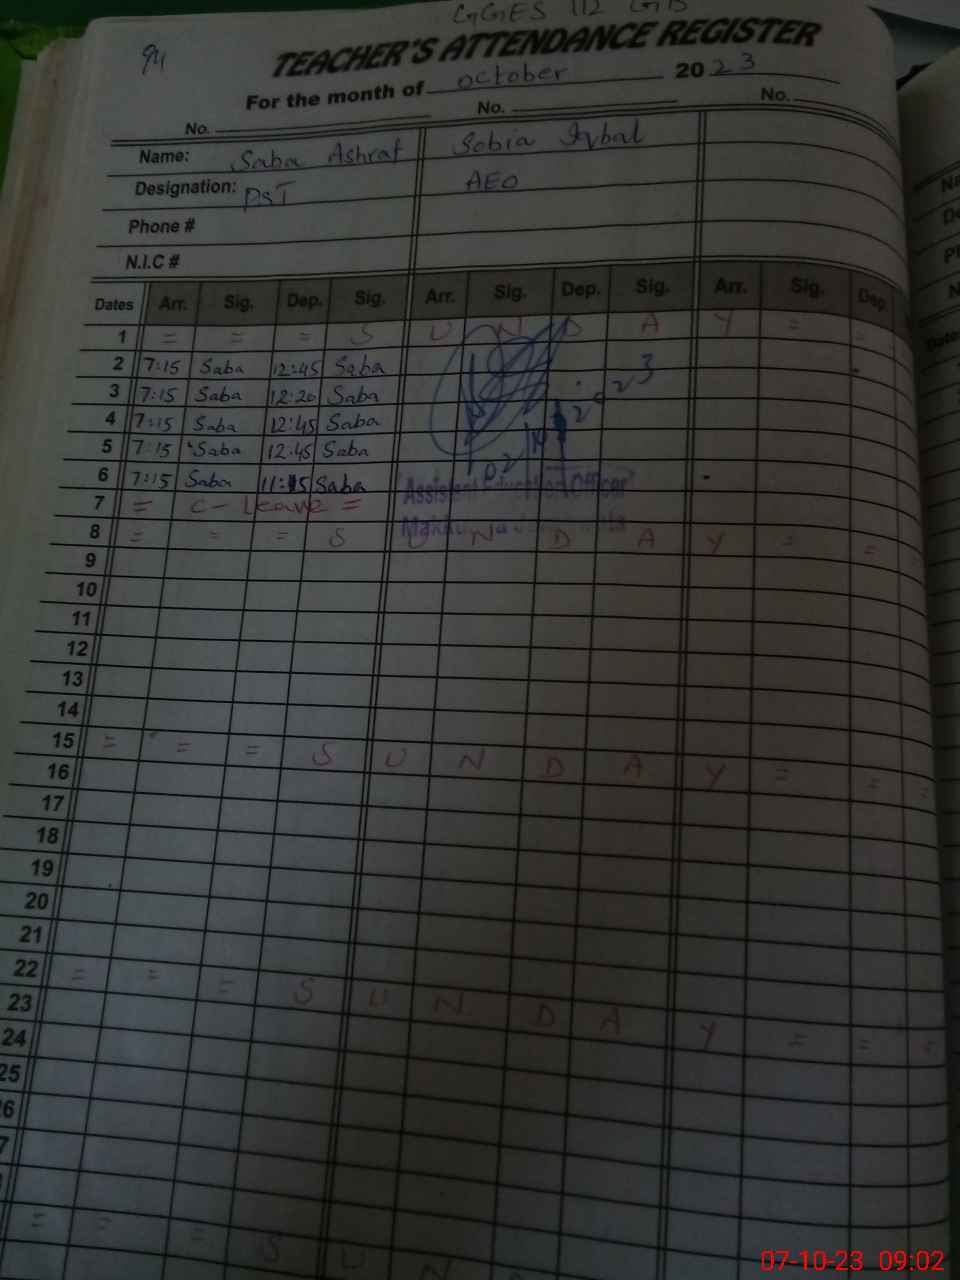 94 GGES 112 GB
TEACHER'S ATTENDANCE REGISTER
For the month of October 2023
No. No. No.
Name: Saba Ashraf Sobia Iqbal
Designation: PST AEO
Phone #
N.I.C #
Dates Arr. Sig. Dep. Sig. Arr. Sig. Dep. Sig. Arr. Sig. Dep.
1 = = = S U N D A Y = =
2 7:15 Saba 12:45 Saba
3 7:15 Saba 12:20 Saba
4 7:15 Saba 12:45 Saba
5 7:15 Saba 12:45 Saba
6 7:15 Saba 11:15 Saba
Assistant Education Officer
7 = C-Leave =
8 = = = S U N D A Y = =
9
10
11
12
13
14
15 = = = S U N D A Y = = =
16
17
18
19
20
21
22 = = = S U N D A Y = = =
23
24
25
6
7
= = = S U N
07-10-23 09:02